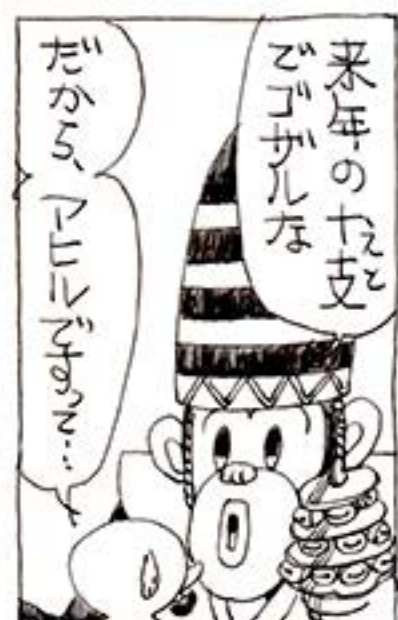 来年の干支
でゴザルな
えと
だから、アヒルですって…